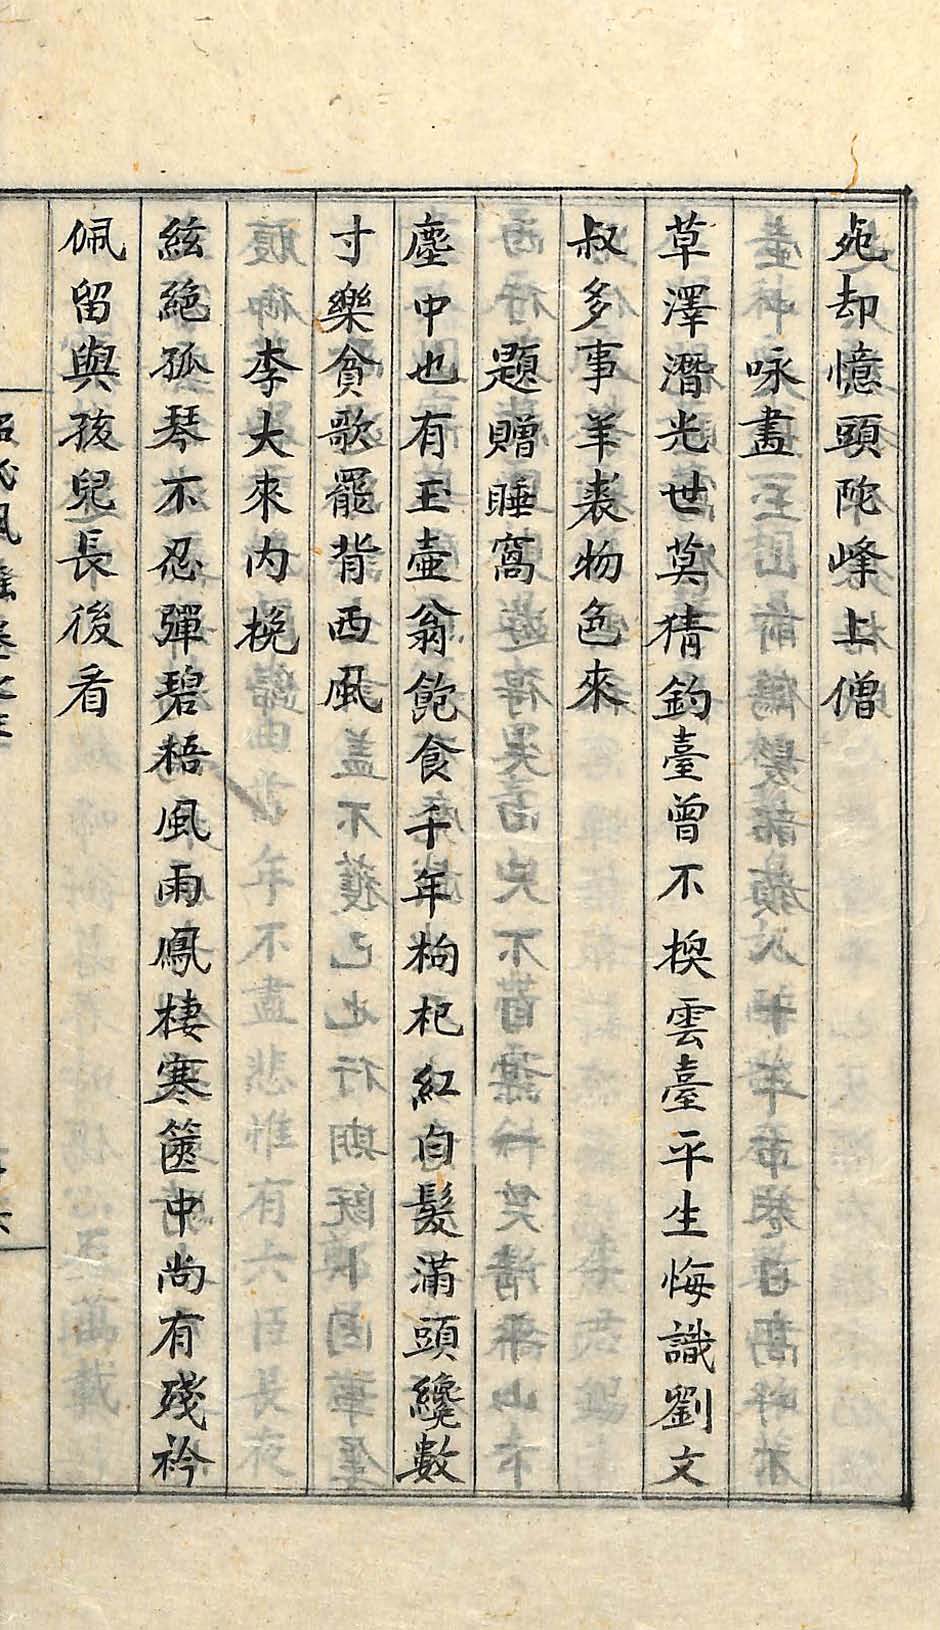 宛却憶頭陀峰上僧
咏畵
草澤潛光世莫猜釣臺曾不換雲臺平生悔識劉文
叔多事羊裘物色來
題贈睡窩
塵中也有玉壺翁飽食千年枸杞紅自髮滿頭纔數
寸樂貧歌罷背西風
李大來内挽
絃絶孤琴不忍彈碧梧風雨鳳棲寒篋中尚有殘衿
佩留與孩兒長後看